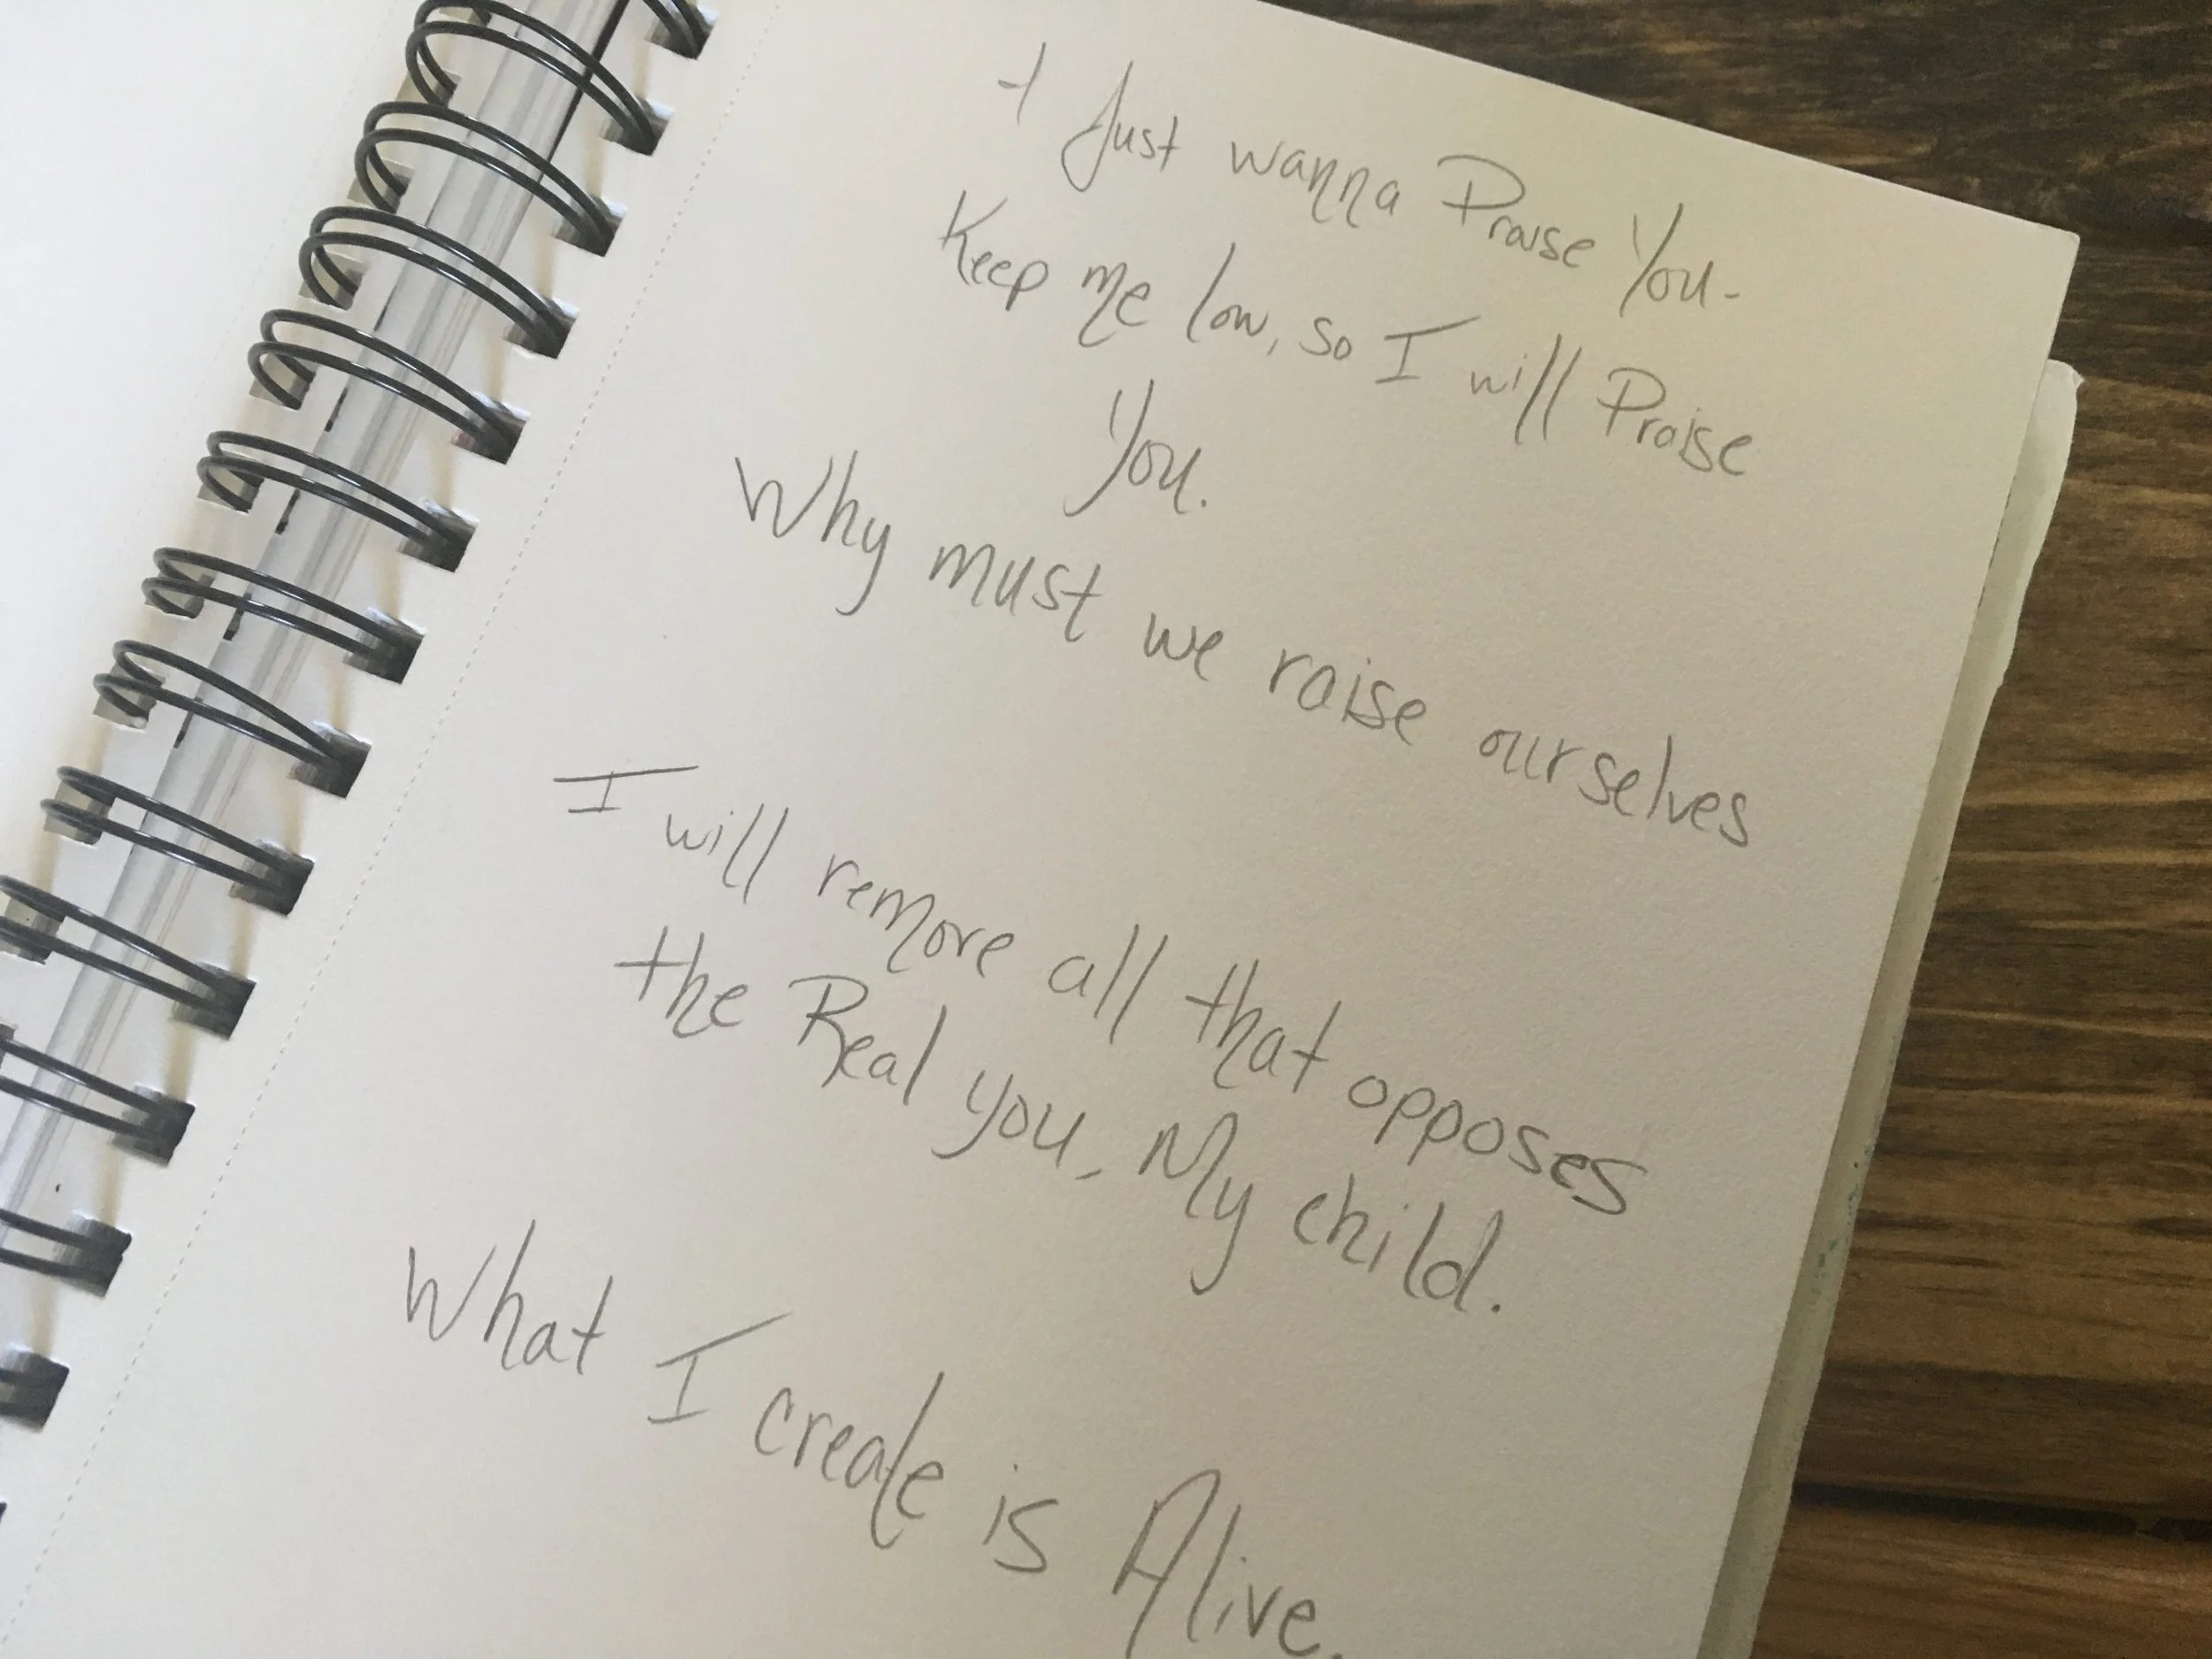 I Just wanna Praise You-
Keep me low, so I will Praise
You.
Why must we raise ourselves
I will remove all that opposes
the Real you, My child.
What I create is Alive.